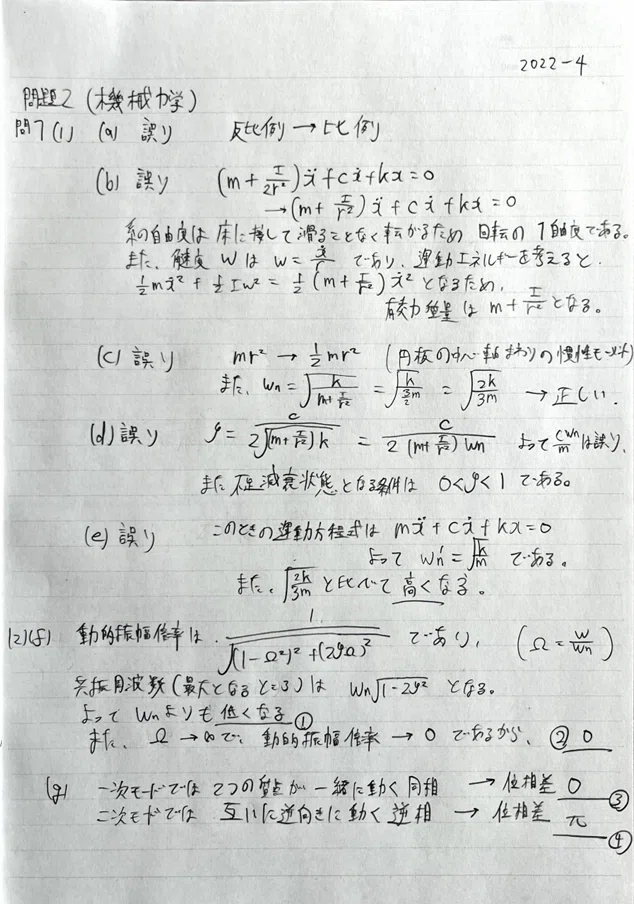 2022-4
問題2 (機械力学)
問7(1) (a) 誤り 反比例→比例
(b) 誤り (m+I/2r²)ẍ+cẋ+kx=0
→(m+I/r²)ẍ+cẋ+kx=0
系の自由度は床に接して滑ることなく転がるため 回転の1自由度である。
また、角速度 ωは ω=ẋ/r であり、運動エネルギーを考えると、
1/2mẋ²+1/2Iω²=1/2(m+I/r²)ẋ² となるため、
有効質量は m+I/r² となる。
(c) 誤り mr² → 1/2mr² (円板の中心軸まわりの慣性モーメント)
また、ωn=√(k/(m+I/r²)) =√(k/(3/2m)) =√(2k/3m) → 正しい.
(d) 誤り ζ=c/(2√((m+I/r²)k)) = c/(2(m+I/r²)ωn) よって cωn/m は誤り.
また不足減衰状態となる条件は 0<ζ<1 である。
(e) 誤り このときの運動方程式は mẍ+cẋ+kx=0
よって ωn'=√(k/m) である。
また、√(2k/3m) と比べて高くなる。
(2)(f) 動的振幅倍率は 1/√((1-Ω²)²+(2ζΩ)²) であり、 (Ω=ω/ωn)
共振周波数(最大となるところ)は ωn√(1-2ζ²) となる。
よって ωnよりも低くなる ①
また、Ω→∞で、動的振幅倍率→0 であるから、 ② 0
(g) 一次モードでは 2つの質点が一緒に動く同相 → 位相差 0 ③
二次モードでは 互いに逆向きに動く逆相 → 位相差 π ④